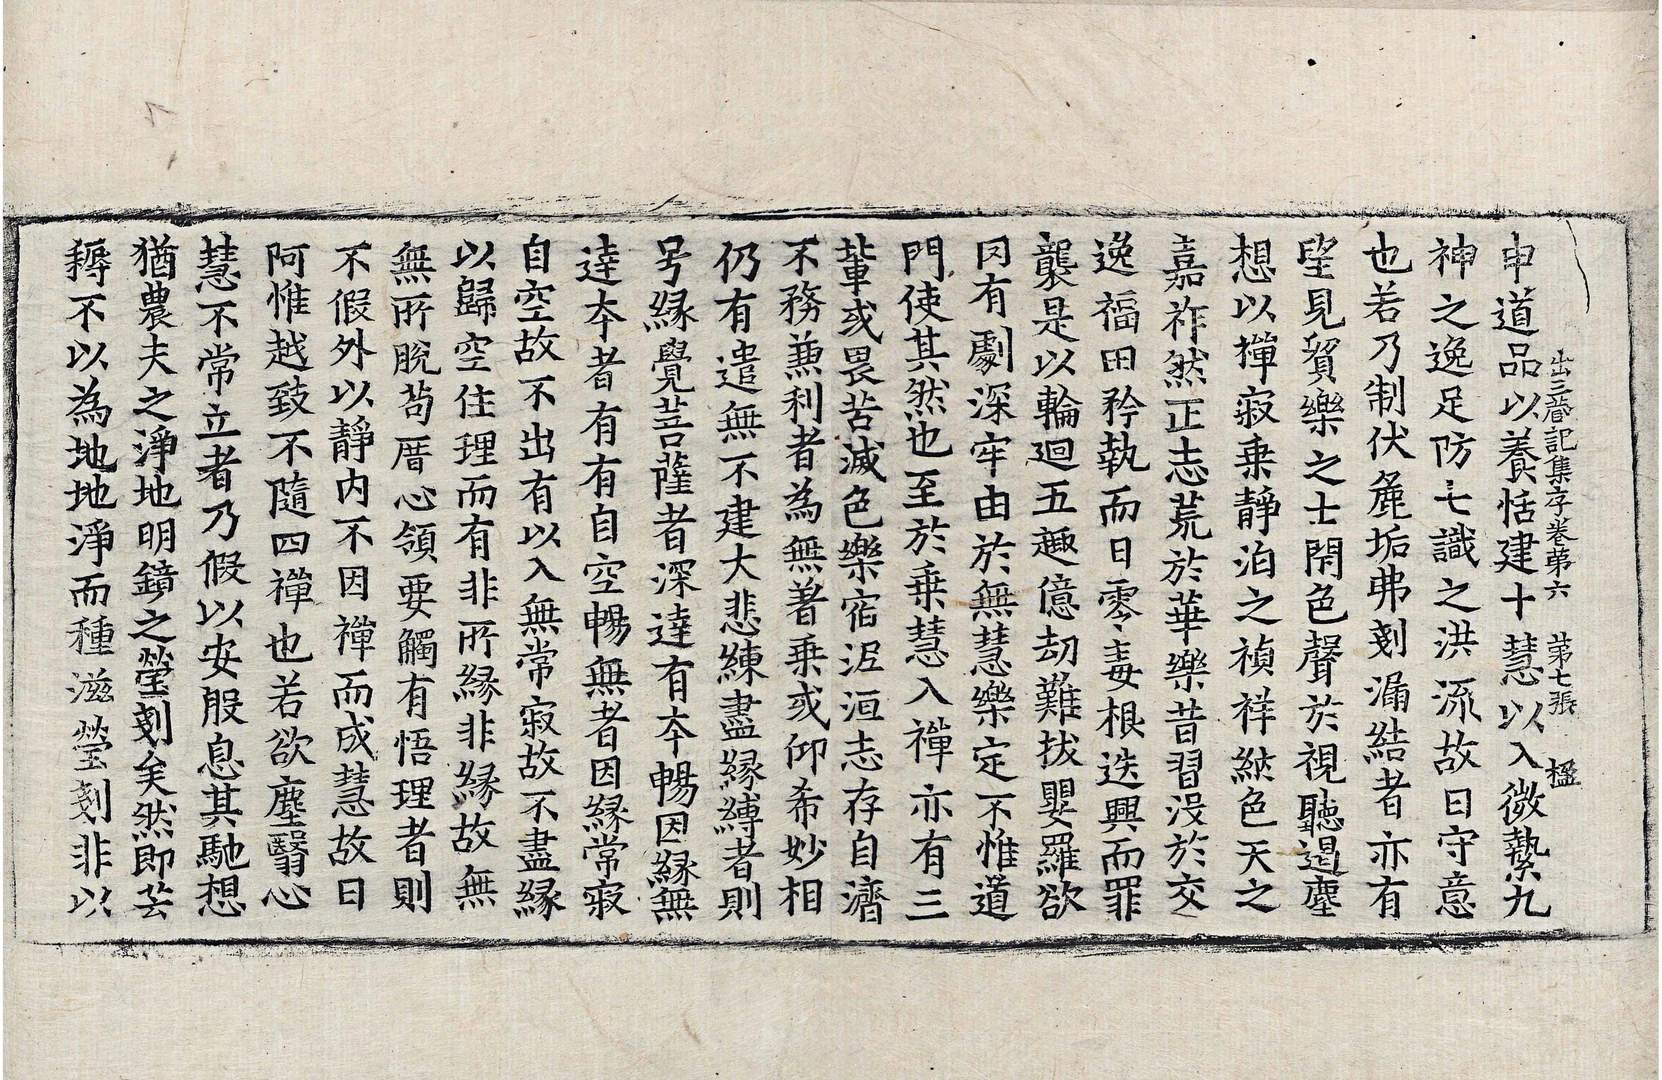 出三藏記集序卷苐六 苐七張 楹
申道品以養恬建十慧以入微縶九
神之逸足防七識之洪流故曰守意
也若乃制伏麁垢弗剗漏結者亦有
望見貿樂之士閇色聲於視聽遏塵
想以禪寂乗靜泊之禎祥納色天之
嘉祚然正志荒於華樂昔習没於交
逸福田矜執而日零毒根迭興而罪
襲是以輪迴五趣億劫難拔嬰羅欲
㓁有劇深牢由於無慧樂定不惟道
門使其然也至於乗慧入禪亦有三
輩或畏苦滅色樂宿泥洹志存自濟
不務兼利者為無著乗或仰希妙相
仍有遣無不建大悲練盡緣縛者則
号緣覺菩薩者深達有夲暢因緣無
達夲者有有自空暢無者因緣常寂
自空故不出有以入無常寂故不盡緣
以歸空住理而有非所緣非緣故無
無所脫苟厝心領要觸有悟理者則
不假外以靜內不因禪而成慧故曰
阿惟越致不隨四禪也若欲塵翳心
慧不常立者乃假以安般息其馳想
猶農夫之淨地明鏡之瑩剗矣然即芸
耨不以為地地淨而種滋瑩剗非以